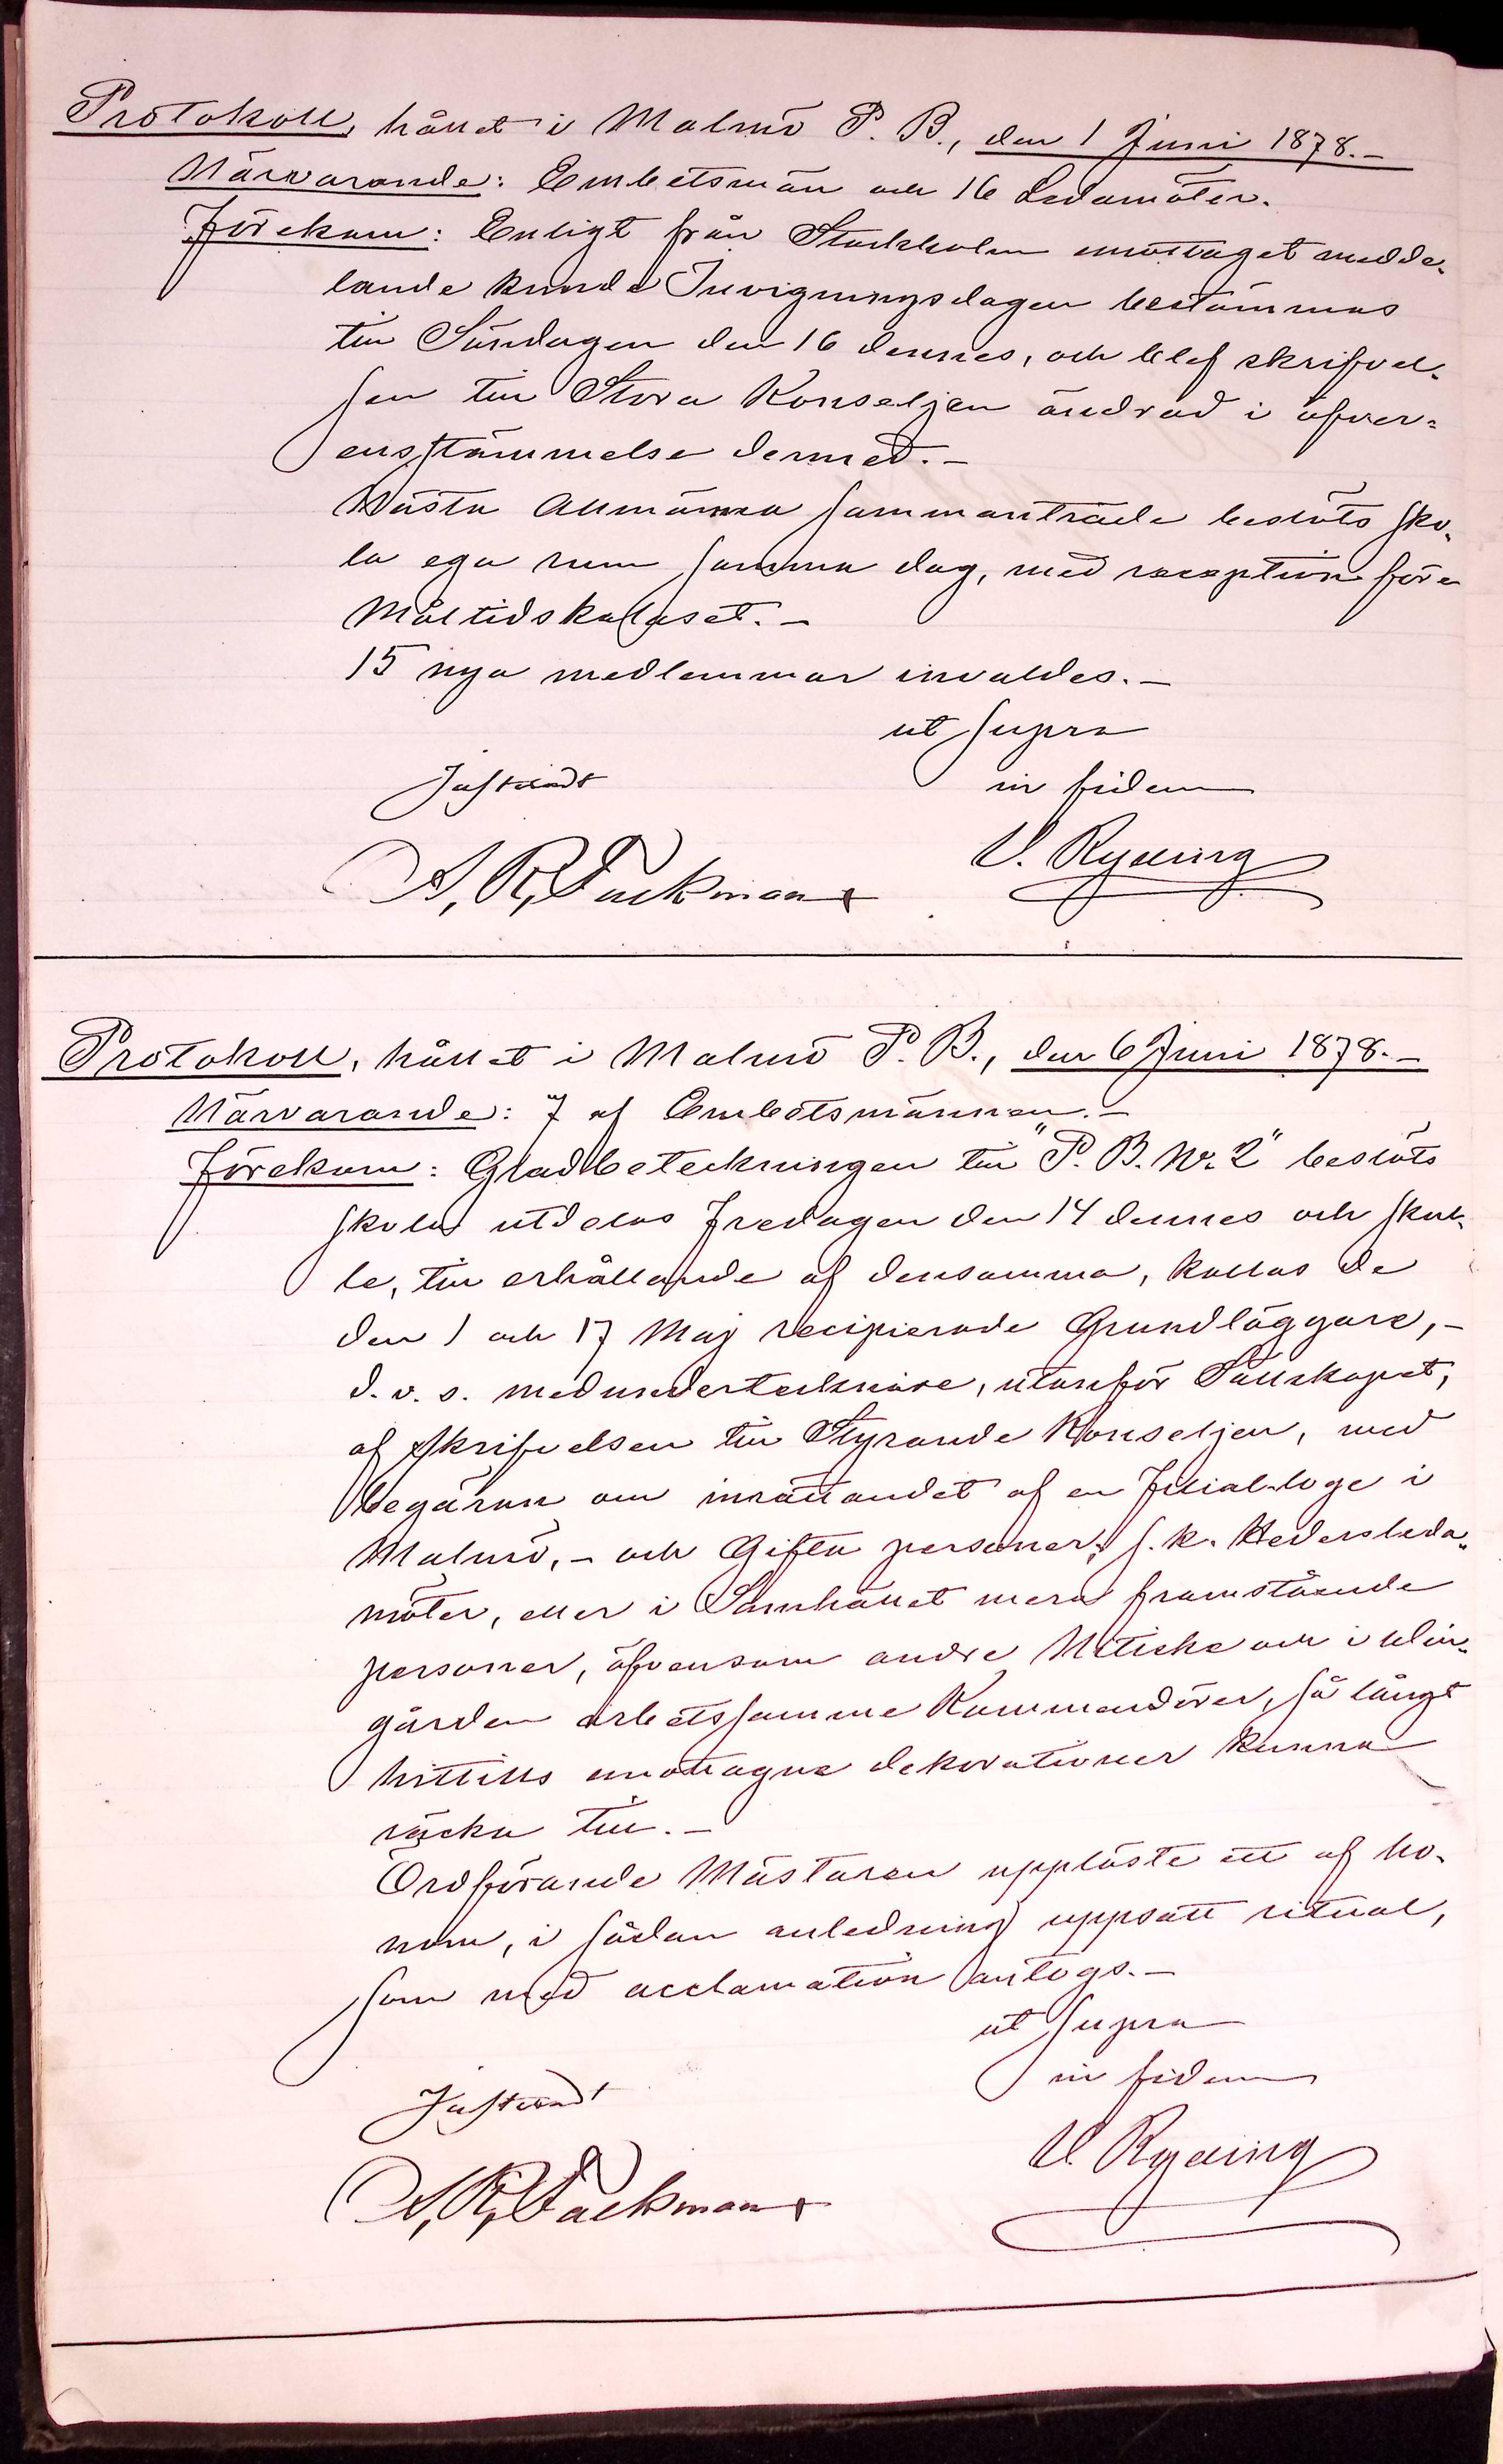 Protokoll, hållet i Malmö P. B., den 1 Juni 1878.-
Närvarande: Embetsmän och 16 Ledamöter.
Förekom: Enligt från Stockholm emottaget medde-
lande kunde Invigningsdagen bestämmas
till Söndagen den 16 dennes, och blef skrifvel-
sen till Stora Konseljen ändrad i öfver-
ensstämmelse dermed.-
Nästa Allmänna sammanträde beslöts sko-
la ega rum samma dag, med reception före
Måltidskalaset.-
15 nya medlemmar invaldes.-
ut supra
Justeradt
in fidem
A. R. Fackman
V. Ryding
Protokoll, hållet i Malmö P. B., den 6 Juni 1878.-
Närvarande: 7 af Embetsmännen.-
Förekom: Gradbeteckningen till "P. B. N:o 2" beslöts
skola utdelas Fredagen den 14 dennes och skul-
le, till erhållande af densamma, kallas de
den 1 och 17 Maj recipierade Grundläggare,-
d. v. s. medundertecknare, utanför Sällskapet,
af skrifvelsen till Styrande Konseljen, med
begäran om inrättandet af en Filial-loge i
Malmö,- och Gifta personer, s. k. Hedersleda-
möter, eller i Samhället mera framstående
personer, äfvensom andre Nitiske och i
gården arbetssamme Kommendörer, så långt
hittills emottagna dekorationer kunna
räcka till.-
Ordförande Mästaren uppläste ett af ho-
nom, i sådan anledning uppsatt ritual,
som med acclamation antogs.-
ut supra
in fidem
Justeradt
V. Ryding
A. R. Fackman